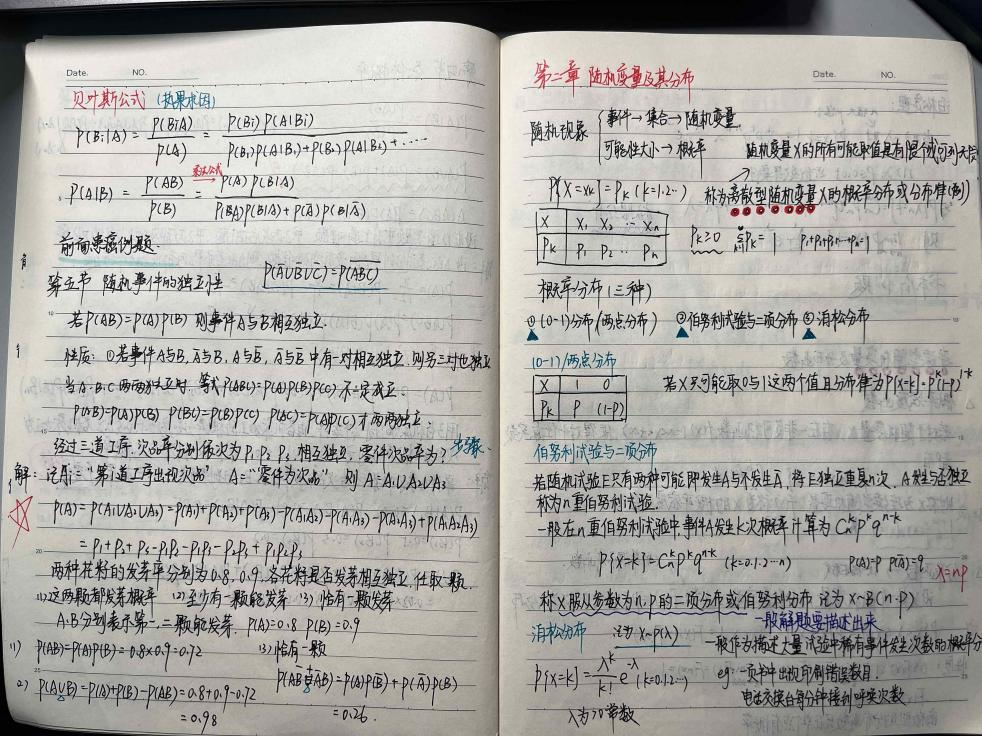 Date. NO.
贝叶斯公式 (执果求因)
P(Bi|A) = P(BiA)/P(A) = P(Bi)P(A|Bi)/P(B1)P(A|B1)+P(B2)P(A|B2)+····
P(A|B) = P(AB)/P(B) 乘法公式→ = P(A)P(B|A)/P(BA)P(B|A)+P(Ā)P(B|Ā)
前面患癌例题.
P(A̅∪B̅∪C̅)=P(A̅B̅C̅)
第五节 随机事件的独立性
若P(AB)=P(A)P(B) 则事件A与B相互独立.
性质: ①若事件A与B, Ā与B, A与B̄, Ā与B̄ 中有一对相互独立. 则另三对也独立
当A.B.C两两独立时. 等式P(ABC)=P(A)P(B)P(C)不一定成立.
P(AB)=P(A)P(B) P(BC)=P(B)P(C) P(AC)=P(A)P(C)才两两独立.
经过三道工序. 次品率分别依次为P1 P2 P3. 相互独立. 零件次品率为? 步骤
解: 记Ai="第i道工序出现次品" A="零件为次品" 则 A=A1∪A2∪A3
P(A)=P(A1∪A2∪A3)=P(A1)+P(A2)+P(A3)-P(A1A2)-P(A1A3)-P(A2A3)+P(A1A2A3)
= P1+P2+P3-P1P2-P1P3-P2P3+P1P2P3
两种花籽的发芽率分别为0.8, 0.9, 各花籽是否发芽相互独立. 任取一颗
(1)这两颗都发芽概率 (2)至少有一颗能发芽 (3)恰有一颗发芽
A.B分别表示第一,二颗能发芽. P(A)=0.8 P(B)=0.9
(1) P(AB)=P(A)P(B)=0.8×0.9=0.72
(3)恰有一颗
P(AB̄+ĀB)=P(A)P(B̄)+P(Ā)P(B)
=0.26.
(2) P(A∪B)=P(A)+P(B)-P(AB)=0.8+0.9-0.72
=0.98
第二章 随机变量及其分布
Date. NO.
随机现象 {事件→集合→随机变量
可能性大小→概率
随机变量X的所有可能取值是有限个或可列无穷
P{X=xk}=Pk (k=1.2…) 称为离散型随机变量X的概率分布或分布律(列)
X X1 X2 … Xn
Pk P1 P2 … Pn
Pk≥0 ΣPk=1 P1+P2+P3…+Pn=1
概率分布(三种)
①(0-1)分布(两点分布) ②伯努利试验与二项分布 ③泊松分布
(0-1)/两点分布
X 1 0
Pk P (1-P)
若X只可能取0与1这两个值且分布律为P{X=k}=P^k(1-P)^1-k
伯努利试验与二项分布
若随机试验E只有两种可能即发生A与不发生Ā, 将E独立重复n次. A发生与否独立
称为n重伯努利试验.
一般在n重伯努利试验中,事件A发生k次概率计算为 Cn^k P^k q^n-k
P{X=k}=Cn^k P^k q^n-k (k=0.1.2…n) P(A)=P P(Ā)=q X=np
称X服从参数为n,p的二项分布或伯努利分布 记为X~B(n·P)
一般解题要描述出来
泊松分布 记为X~P(λ) 一般作为描述大量试验中稀有事件发生次数的概率分
P{X=k}=λ^k/k! e^-λ (k=0.1.2…) eg:一页书中出现印刷错误数目.
电话交换台每分钟接到呼唤次数
λ为>0常数